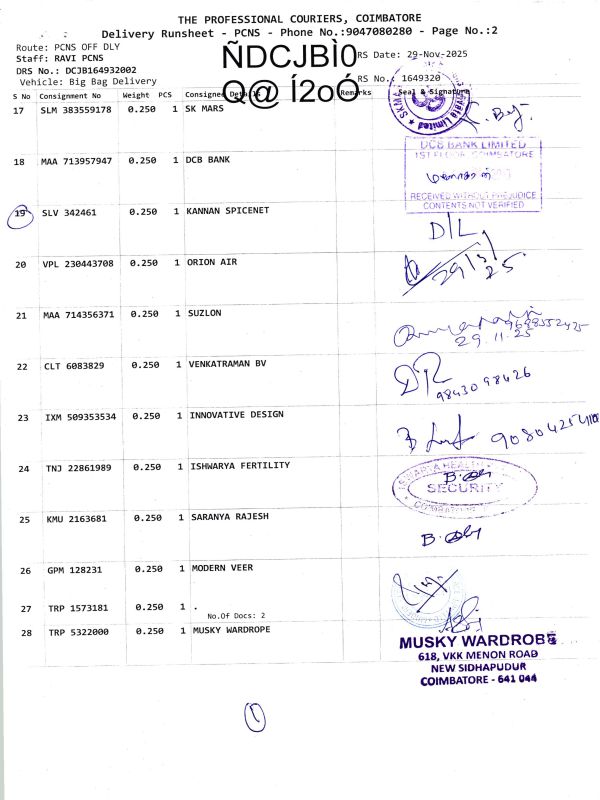 THE PROFESSIONAL COURIERS, COIMBATORE
Delivery Runsheet - PCNS - Phone No.:9047080280 - Page No.:2
Route: PCNS OFF DLY
ÑDCJBÌ0
RS Date: 29-Nov-2025
Staff: RAVI PCNS
DRS No.: DCJB164932002
Q@ Í2oÓ
RS No.: 1649320
Vehicle: Big Bag Delivery
S No Consignment No Weight PCS Consignee Details Remarks Seal & Signature
17 SLM 383559178 0.250 1 SK MARS
Limited
18 MAA 713957947 0.250 1 DCB BANK
DCB BANK LIMITED
1ST FLOOR, COIMBATORE
RECEIVED WITHOUT PREJUDICE
CONTENTS NOT VERIFIED
19 SLV 342461 0.250 1 KANNAN SPICENET
D/L
20 VPL 230443708 0.250 1 ORION AIR
21 MAA 714356371 0.250 1 SUZLON
29.11.25
22 CLT 6083829 0.250 1 VENKATRAMAN BV
98430 98426
23 IXM 509353534 0.250 1 INNOVATIVE DESIGN
24 TNJ 22861989 0.250 1 ISHWARYA FERTILITY
SECURITY
25 KMU 2163681 0.250 1 SARANYA RAJESH
26 GPM 128231 0.250 1 MODERN VEER
27 TRP 1573181 0.250 1 .
No.Of Docs: 2
28 TRP 5322000 0.250 1 MUSKY WARDROPE
MUSKY WARDROBE
618, VKK MENON ROAD
NEW SIDHAPUDUR
COIMBATORE - 641 044
1